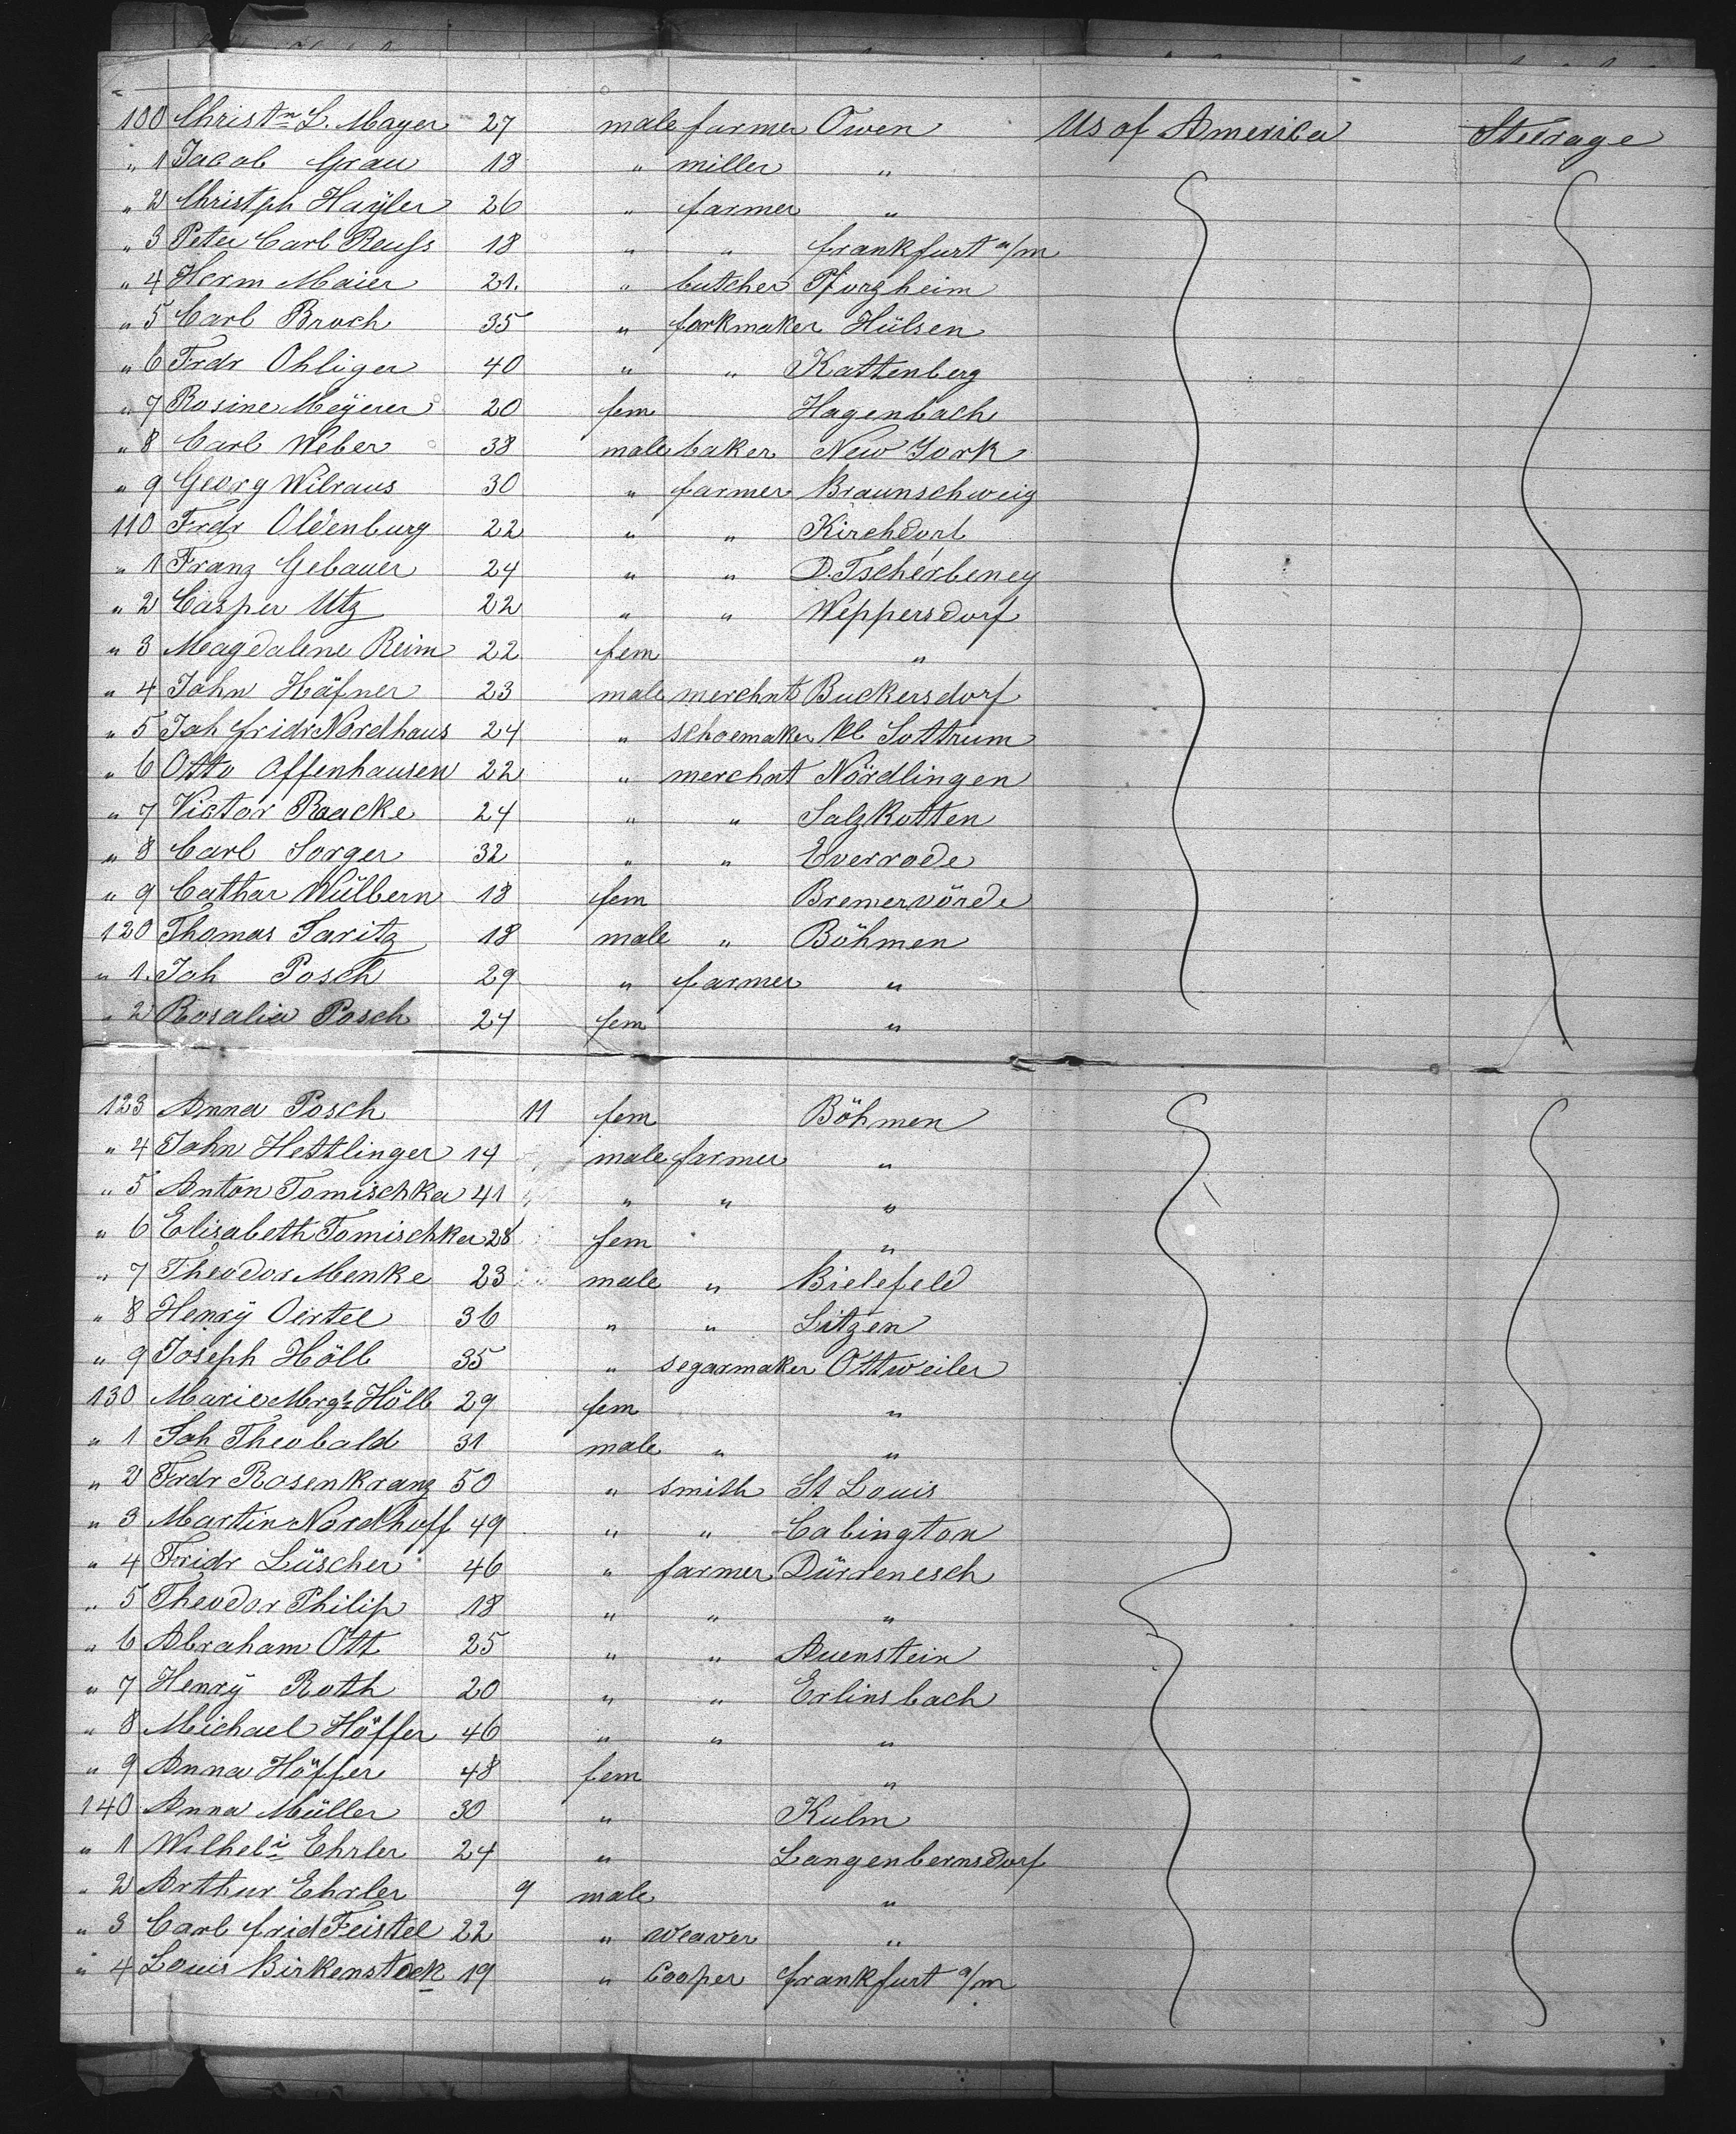 100 Christn L. Mayer 27 male farmer Owen Us of America Steerage
" 1 Jacob Grau 18 " miller "
" 2 Christph Hayler 26 " farmer "
" 3 Peter Carl Reuss 18 " " frankfurt a/m
" 4 Herm Maier 21. " butcher Pforzheim
" 5 Carl Broch 35 " forkmaker Hülsen
" 6 Frdr Ohliger 40 " " Kattenberg
" 7 Rosine Meÿerer 20 fem Hagenbach
" 8 Carl Weber 38 male baker New York
" 9 Georg Wilraus 30 " farmer Braunschweig
110 Frdr Oldenburg 22 " " Kirchdorf
" 1 Franz Gebauer 24 " " D. Tscherbeney
" 2 Casper Utz 22 " " Weppersdorf
" 3 Magdalene Reim 22 fem "
" 4 John Häfner 23 male merchnt Buckersdorf
" 5 Joh fridr Nordhaus 24 " schoemaker Kl Sottrum
" 6 Otto Offenhausen 22 " merchnt Nördlingen
" 7 Victor Raacke 24 " " Salzkotten
" 8 Carl Sorger 32 " " Everrode
" 9 Cathar Wülbern 18 fem Bremervörde
120 Thomas Saritz 18 male " Böhmen
" 1. Joh Posch 29 " farmer "
" 2 Rosalia Posch 24 fem "
123 Anna Posch 11 fem Böhmen
" 4 John Hettlinger 14 male farmer "
" 5 Anton Tomischka 41 " " "
" 6 Elisabeth Tomischka 28 fem "
" 7 Theodor Menke 23 male " Bielefeld
" 8 Henrÿ Oertel 36 " " Litzen
" 9 Joseph Höll 35 " segarmaker Ottweiler
130 Marie Mrgt Höll 29 fem "
" 1 Joh Theobald 31 male " "
" 2 Frdr Rosenkranz 50 " smith St Louis
" 3 Martin Nordhoff 49 " " Cabington
" 4 Fridr Lüscher 46 " farmer Dürrenesch
" 5 Theodor Philip 18 " " "
" 6 Abraham Ott 25 " " Auenstein
" 7 Henrÿ Roth 20 " " Erlinsbach
" 8 Michael Höffer 46 " " "
" 9 Anna Höffer 48 fem "
140 Anna Müller 30 " Kulm
" 1 Wilheli Ehrler 24 " Langenbernsdorf
" 2 Arthur Ehrler 9 male "
" 3 Carl frid Feistel 22 " weaver "
" 4 Louis Birkenstock 19 " Cooper frankfurt a/m